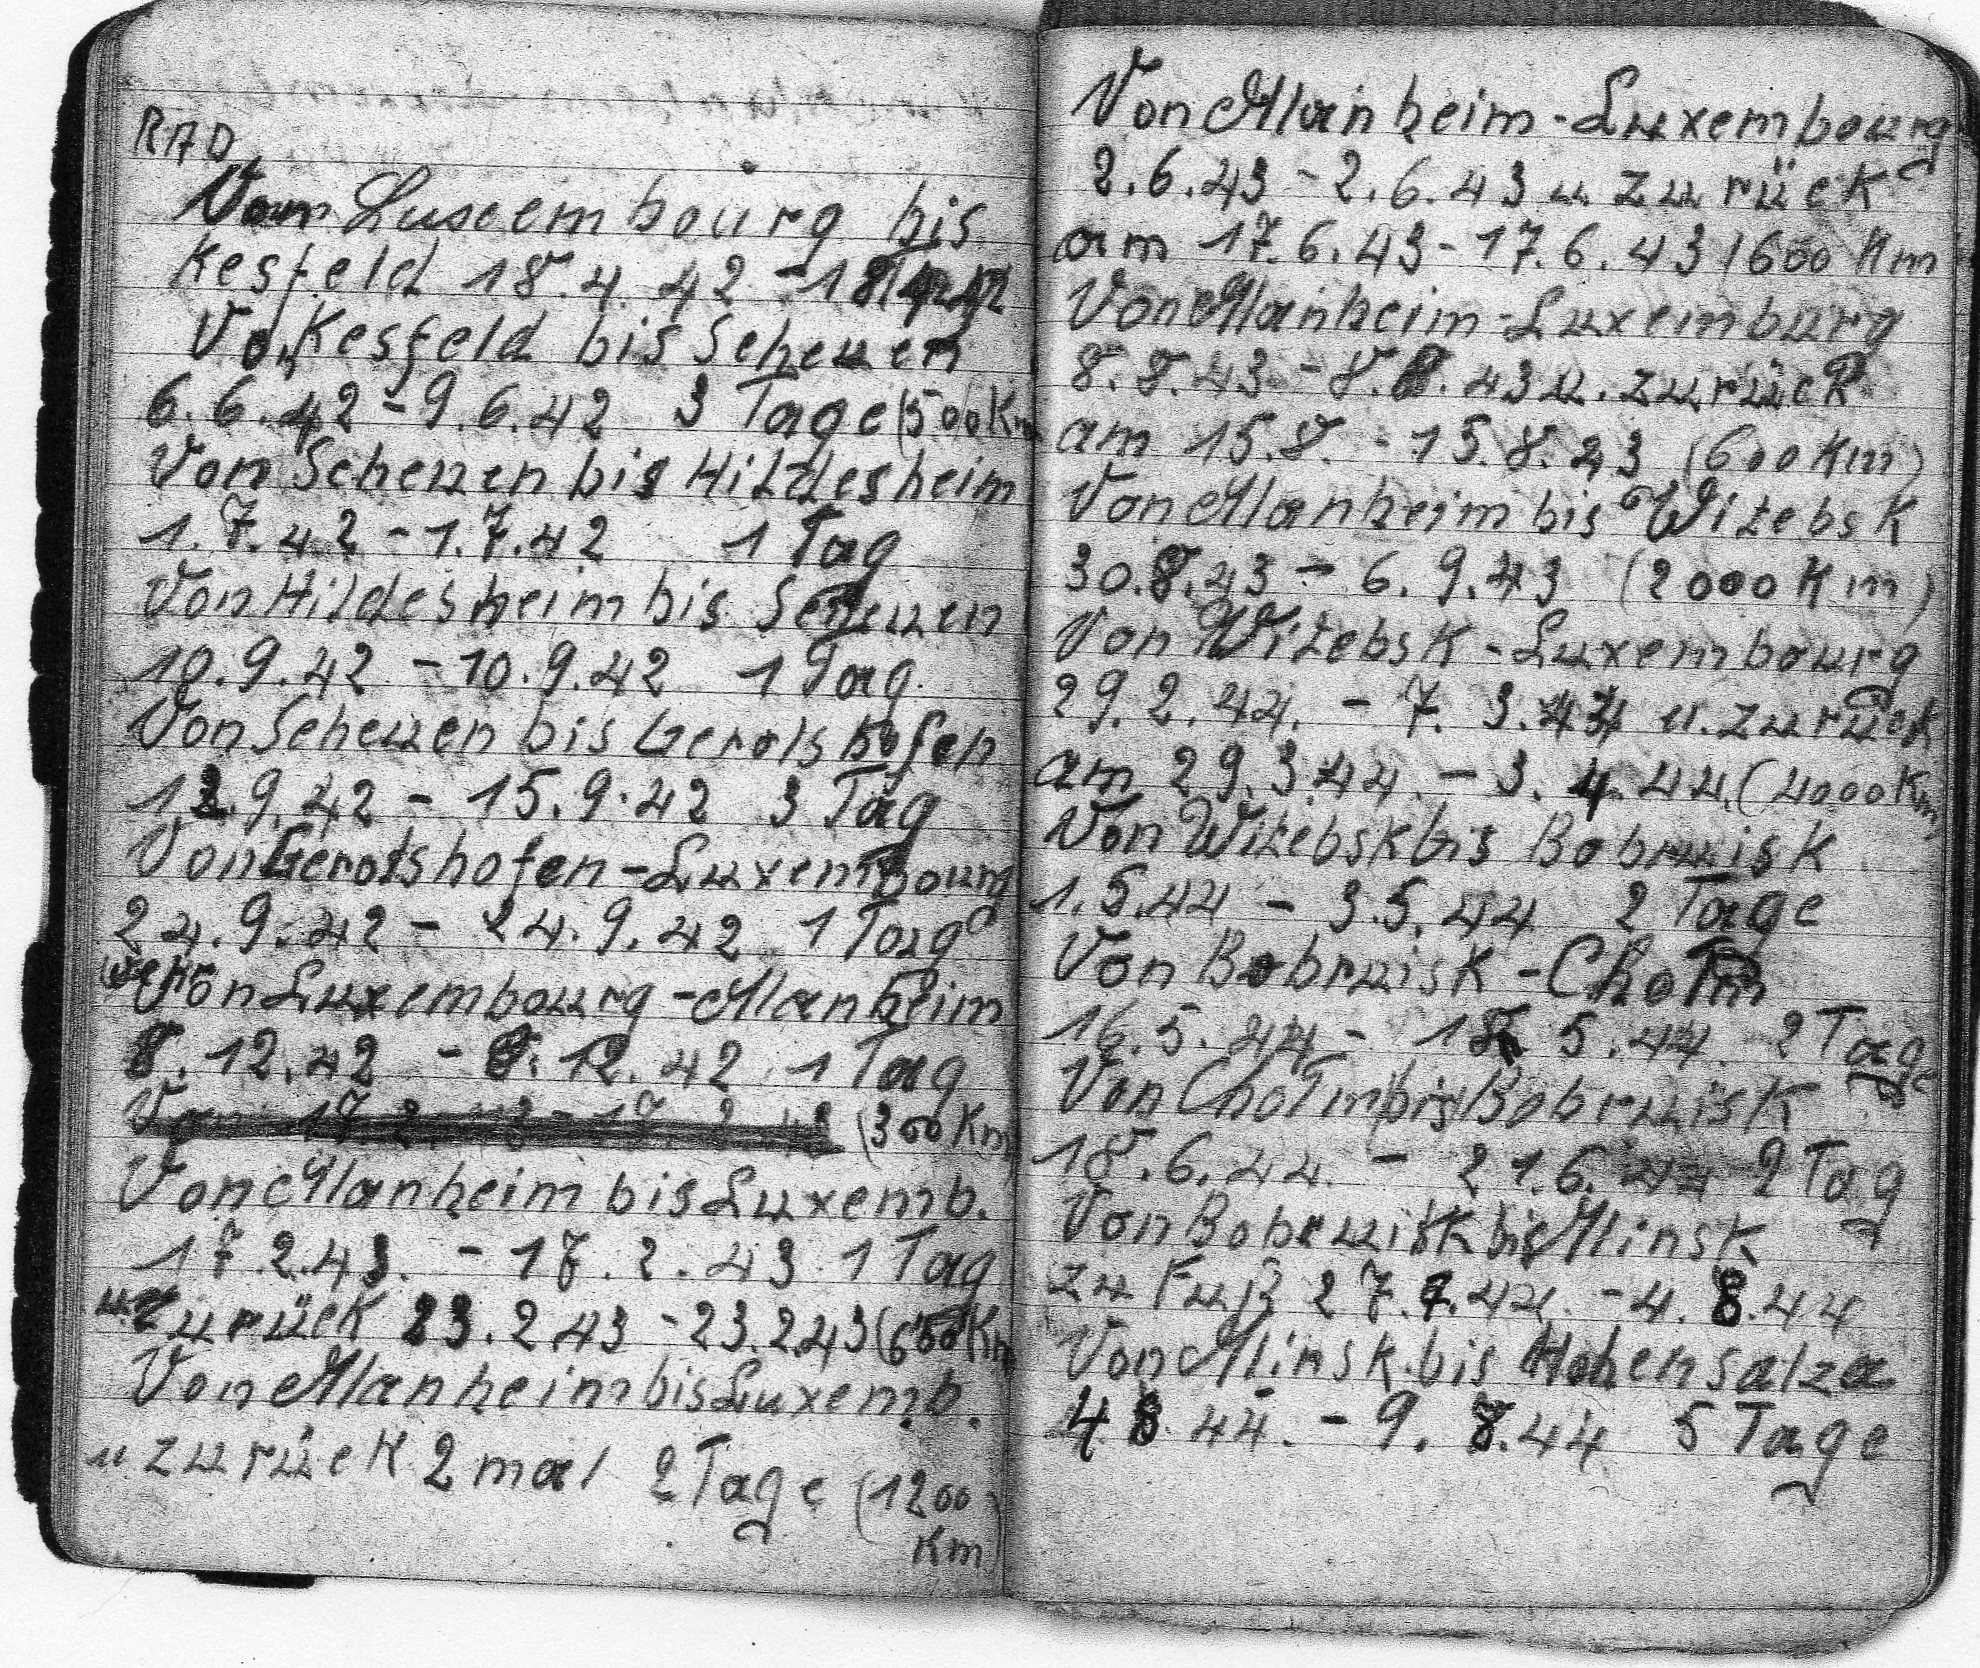 RAD
Von Luxembourg bis
Kesfeld 18.4.42 - 18.4.42
Von Kesfeld bis Scheuen
6.6.42 - 9.6.42 3 Tage (500 Km
Von Scheuen bis Hildesheim
1.7.42 - 1.7.42 1 Tag
Von Hildesheim bis Scheuen
10.9.42 - 10.9.42 1 Tag.
Von Scheuen bis Gerolshofen
12.9.42 - 15.9.42 3 Tag
Von Gerolshofen - Luxembourg
24.9.42 - 24.9.42 1 Tag
Von Luxembourg - Manheim
8.12.42 - 8.12.42 1 Tag
(300 Km
Von Manheim bis Luxemb.
17.2.43. - 17.2.43 1 Tag
u. zurück 23.2.43 - 23.2.43 (600 Km
Von Manheim bis Luxemb.
u zurück 2 mal 2 Tage (1200
Km)
Von Manheim - Luxembourg
2.6.43 - 2.6.43 u zurück
am 17.6.43 - 17.6.43 (600 Km
Von Manheim - Luxemburg
8.8.43 - 8.8.43 u. zurück
am 15.8. - 15.8.43 (600 Km)
Von Manheim bis Witebsk
30.8.43 - 6.9.43 (2000 Km)
Von Witebsk - Luxembourg
29.2.44. - 7.3.44 u. zurück
am 29.3.44. - 3.4.44. (4000 Km)
Von Witebsk bis Bobruisk
1.5.44 - 3.5.44 2 Tage
Von Bobruisk - Cholm
16.5.44 - 18.5.44 2 Tage
Von Cholm bis Bobruisk
18.6.44. - 21.6.44 2 Tag
Von Bobruisk bis Minsk
zu Fuß 27.7.44. - 4.8.44
Von Minsk bis Hohensalza
4.8.44. - 9.8.44 5 Tage